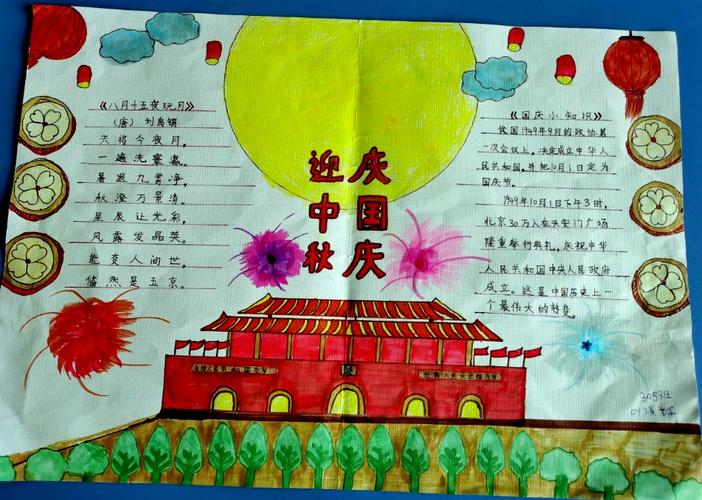 《八月十五夜玩月》
（唐）刘禹锡
天将今夜月，
一遍洗寰瀛。
暑退九霄净，
秋澄万景清。
星辰让光彩，
风露发晶英。
能变人间世，
悠然是玉京。
迎中秋
庆国庆
《国庆小知识》
我国1949年9月的政协第
一次会议上，决定成立中华人
民共和国，并把10月1日定为
国庆节。
1949年10月1日下午3时，
北京30万人在天安门广场
隆重举行典礼，庆祝中华
人民共和国中央人民政府
成立。这是中国历史上一
个最伟大的转变。
305班